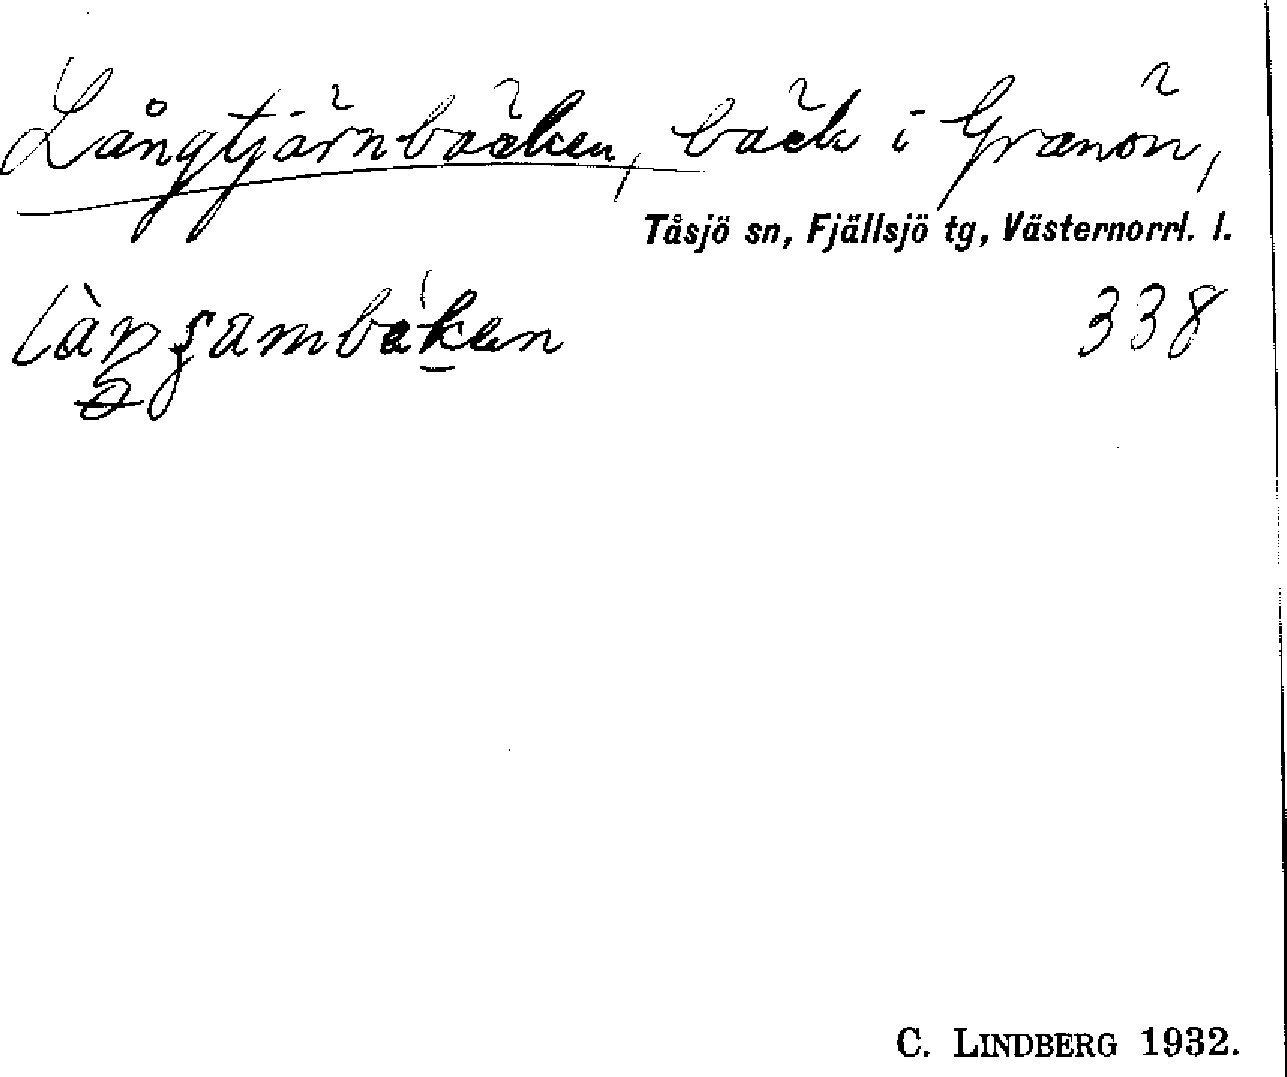 Långtjärnbäcken, bäck i Granön,
Tåsjö sn, Fjällsjö tg, Västernorrl. l.
338
C. LINDBERG 1932.